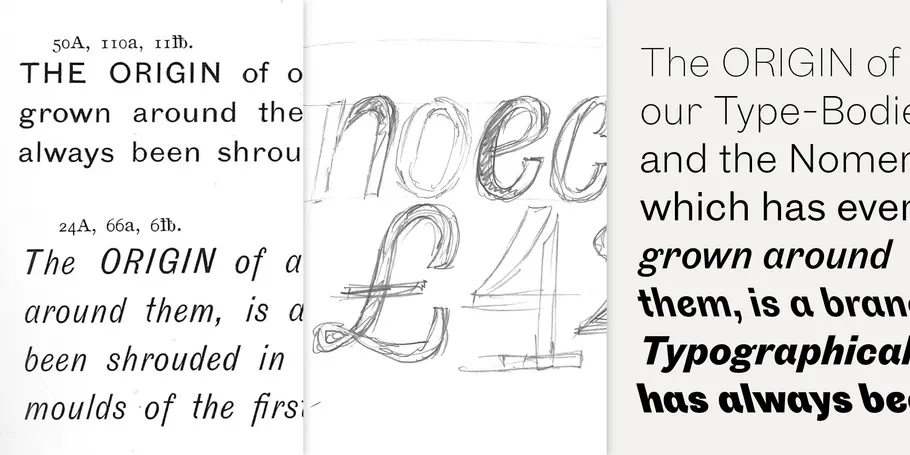 50A, 110a, 11℔.
THE ORIGIN of o
grown around the
always been shrou
24A, 66a, 6℔.
The ORIGIN of a
around them, is a
been shrouded in
moulds of the first
noec
£42
The ORIGIN of
our Type-Bodie
and the Nomen
which has ever
grown around
them, is a bran
Typographical
has always be